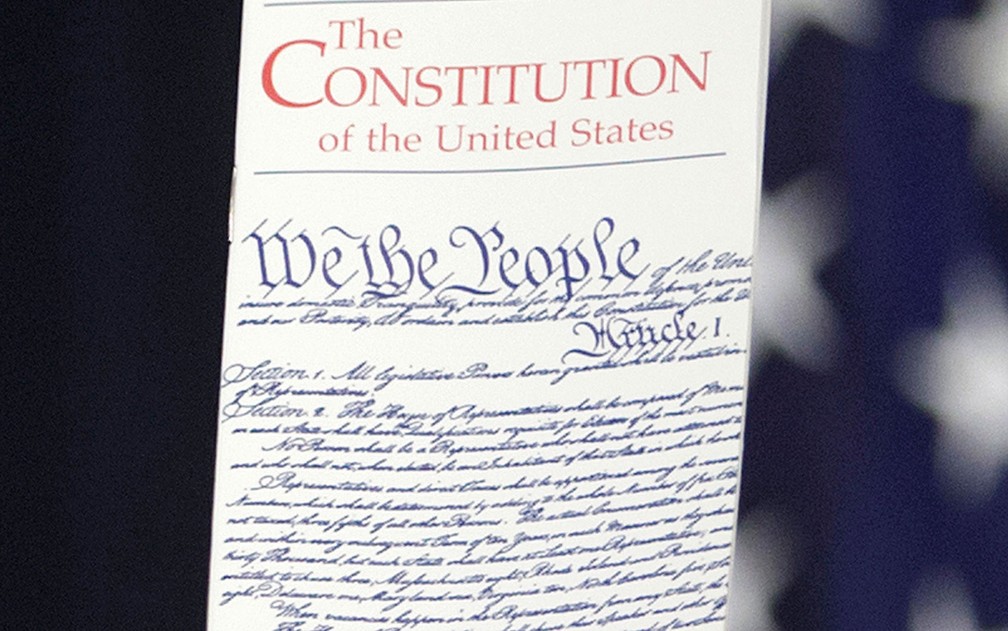 The
CONSTITUTION
of the United States
We the People of the Uni
insure domestic Tranquility, provide for the common defence, promo
and our Posterity, do ordain and establish this Constitution for the U
Article. I.
Section. 1. All legislative Powers herein granted shall be vested in
of Representatives.
Section. 2. The House of Representatives shall be composed of Mem
in each State shall have Qualifications requisite for Electors of the most numerou
No Person shall be a Representative who shall not have attained
and who shall not, when elected, be an Inhabitant of that State in which he
Representatives and direct Taxes shall be apportioned among the several
Numbers, which shall be determined by adding to the whole Number of free
not taxed, three fifths of all other Persons. The actual Enumeration shall be
and within every subsequent Term of ten Years, in such Manner as they shall
thirty Thousand, but each State shall have at Least one Representative; and
entitled to chuse three, Massachusetts eight, Rhode Island and Providence
eight, Delaware one, Maryland six, Virginia ten, North Carolina five, So
When vacancies happen in the Representation from any State, the